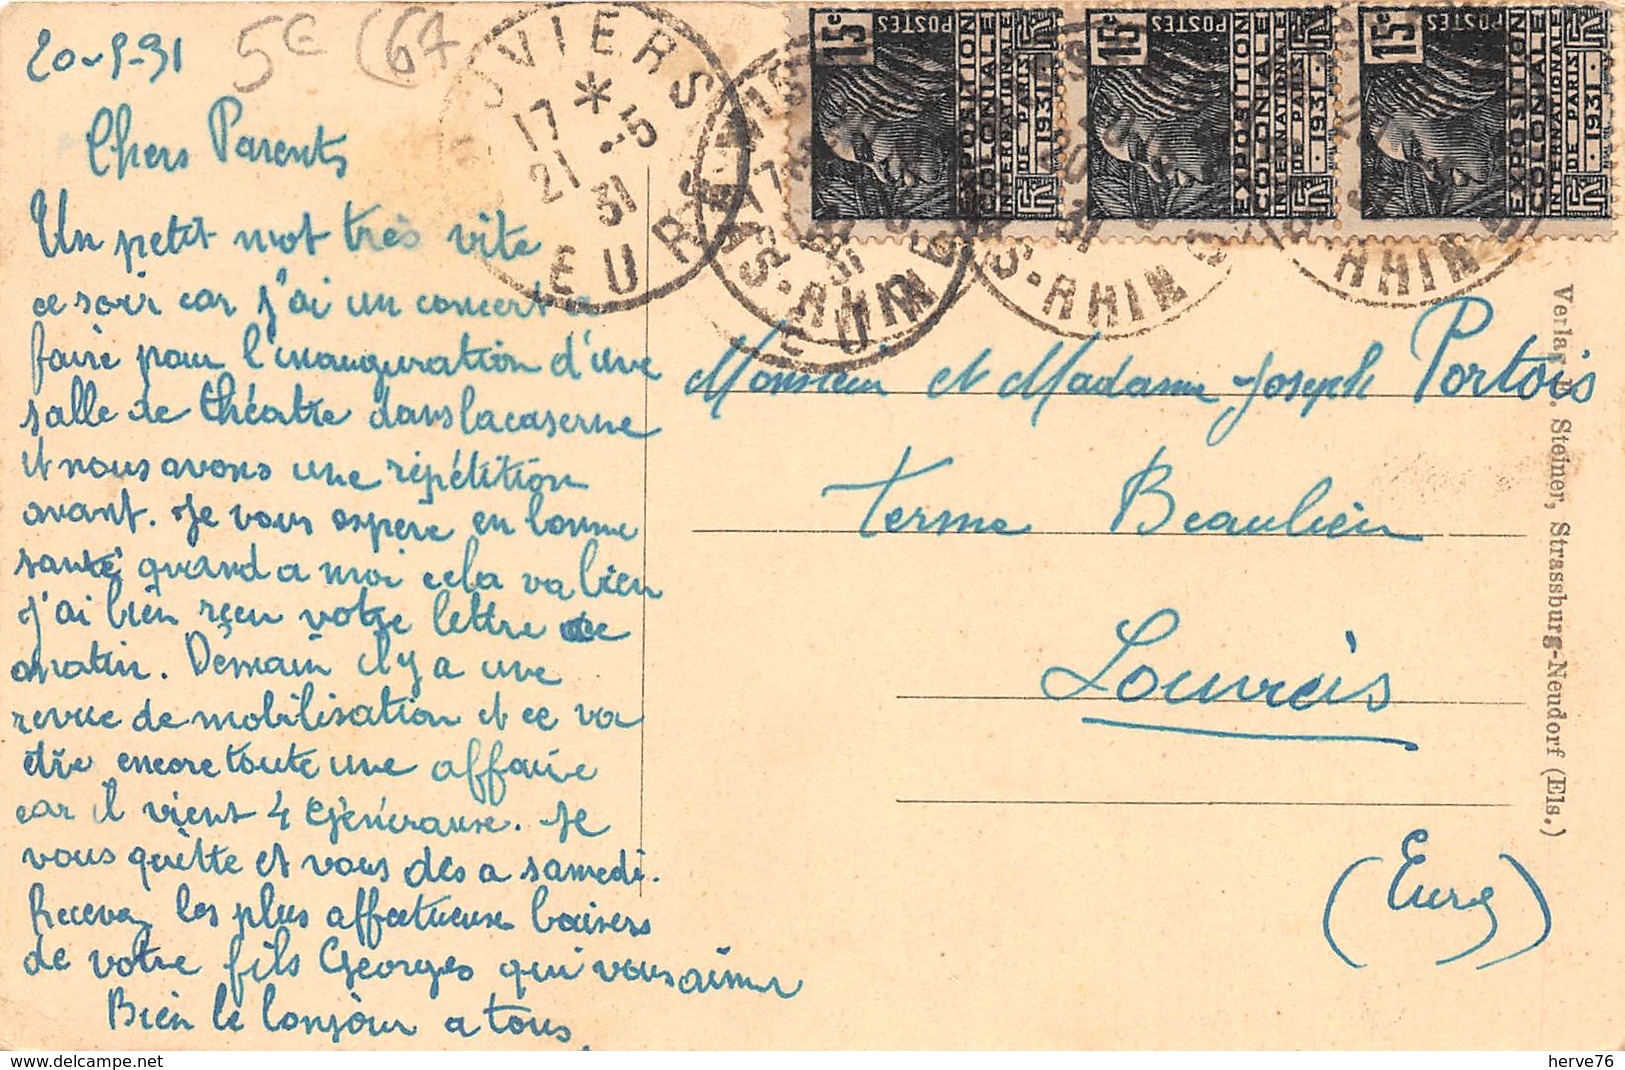 20-5-31
5e (67
Chers Parents
Un petit mot très vite
ce soir car j'ai un concert a
faire pour l'inauguration d'une
salle de théatre dans la caserne
et nous avons une répétition
avant. Je vous espère en bonne
santé quand a moi cela va bien
j'ai bien reçu votre lettre ce
matin. Demain il y a une
revue de mobilisation et ce va
être encore toute une affaire
car il vient 4 Généraux. Je
vous quitte et vous dis a samedi.
Recevez les plus affectueux baisers
de votre fils Georges qui vous aime
Bien le bonjour a tous.
LOUVIERS
17 *
21 -5
31
EURE
15c POSTES
EXPOSITION
COLONIALE
INTERNATIONALE
DE PARIS
1931
15c POSTES
EXPOSITION
COLONIALE
INTERNATIONALE
DE PARIS
1931
15c POSTES
EXPOSITION
COLONIALE
INTERNATIONALE
DE PARIS
1931
BAS-RHIN
S-RHIN
RHIN
Monsieur et Madame Joseph Portois
ferme Beaulieu
Louviers
(Eure)
Verlag D. Steiner, Strassburg-Neudorf (Els.)
www.delcampe.net
herve76